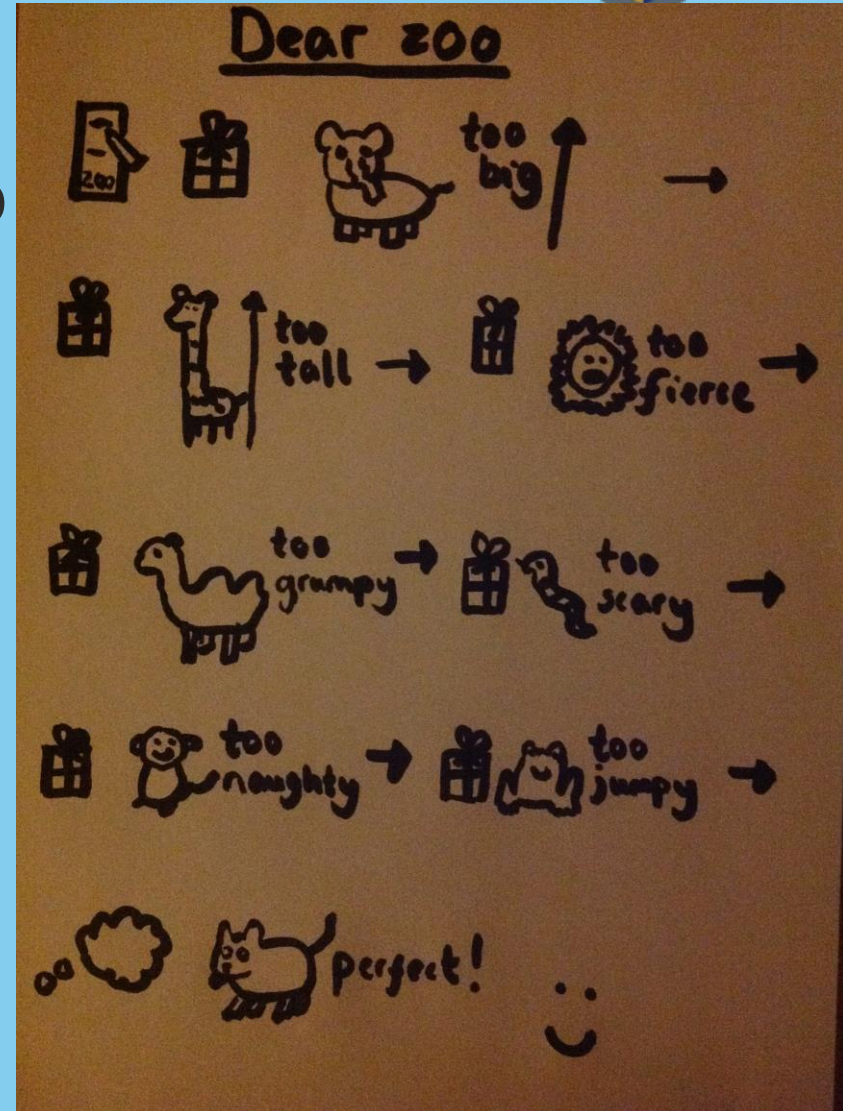 Dear zoo
zoo
too
big
too
tall
too
fierce
too
grumpy
too
scary
too
naughty
too
jumpy
perfect!